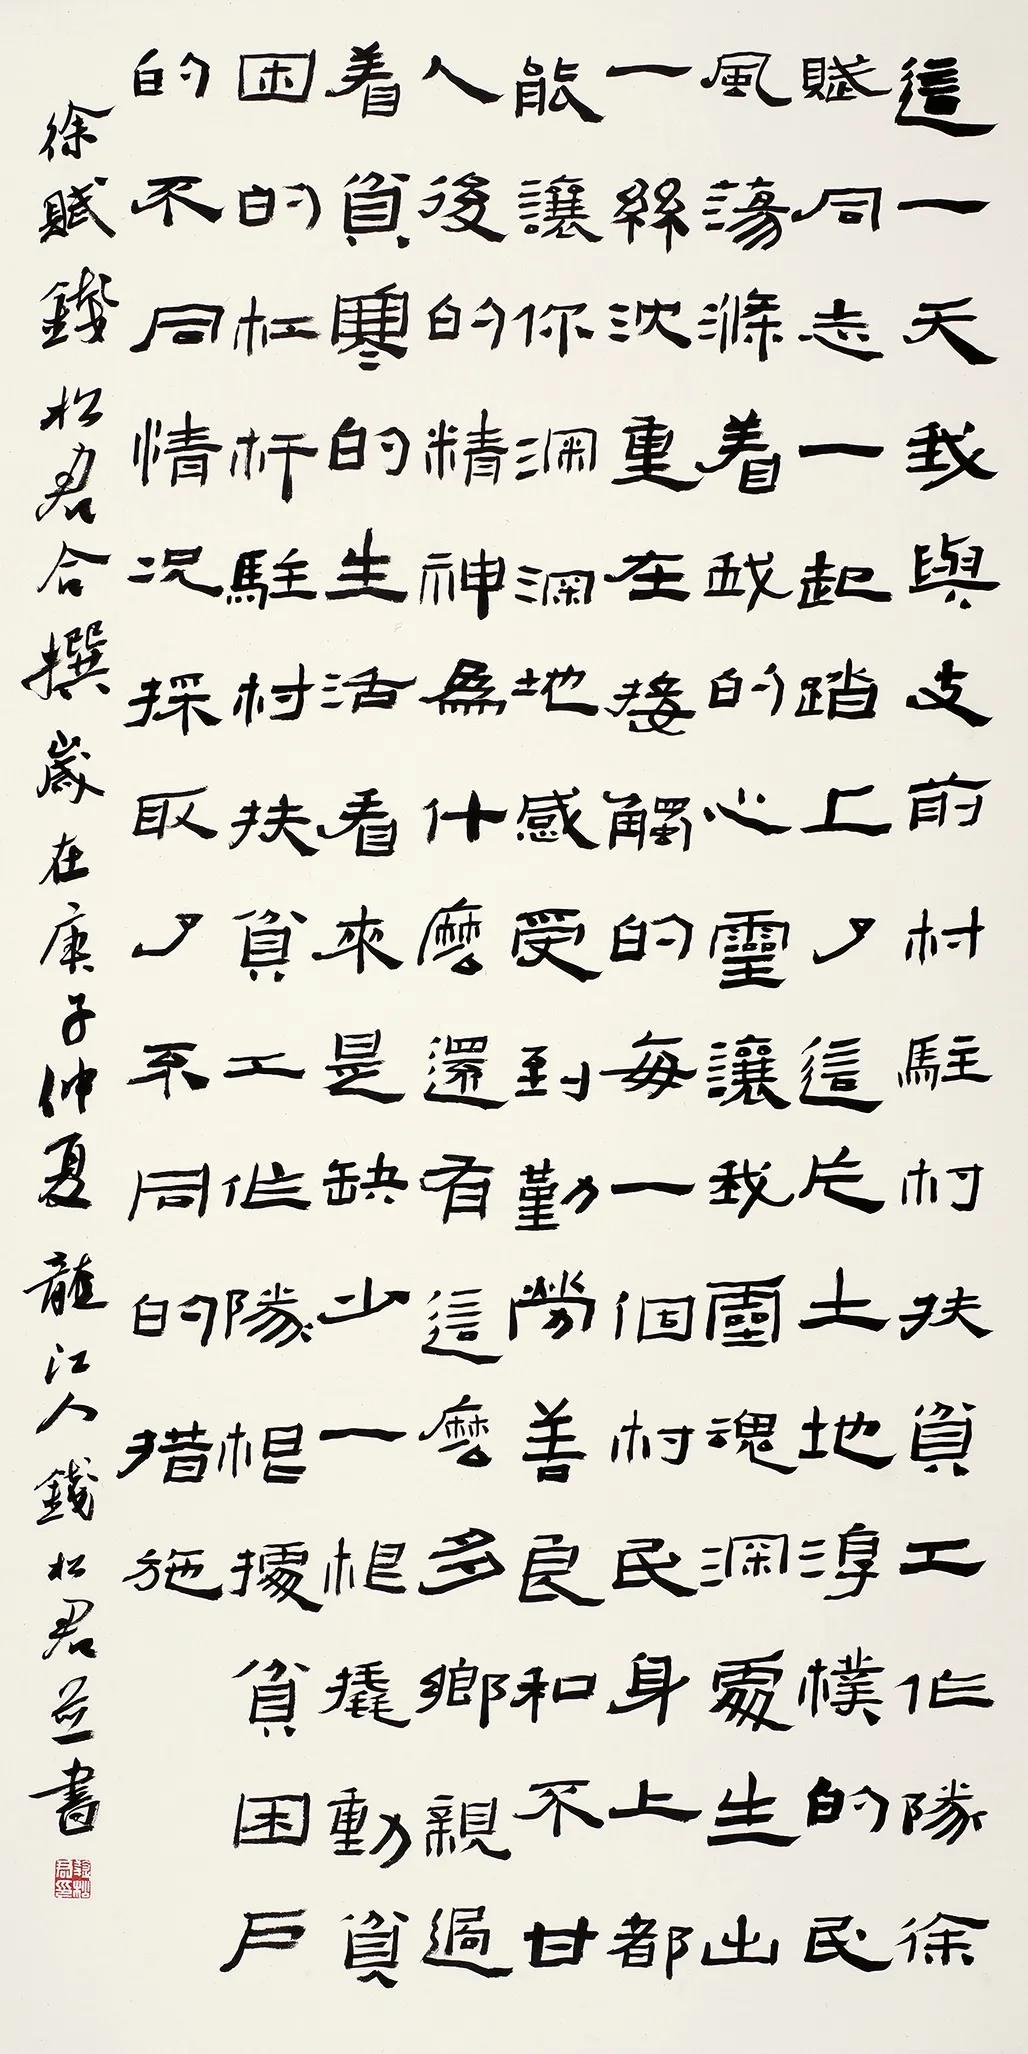 這一天我與支前村駐村扶貧工作隊徐
賦同志一起踏上了這片土地淳樸的民
風蕩滌着我的心靈讓我靈魂深處生出
一絲沈重在接觸的每一個村民身上都
能讓你深深地感受到勤勞善良和不甘
人後的精神爲什麼還有這麼多鄉親過
着貧寒的生活看來是缺少一根撬動貧
困的杠杆駐村扶貧工作隊根據貧困戶
的不同情況採取了不同的措施
徐賦錢松君合撰歲在庚子仲夏龍江人錢松君並書
錢松君印